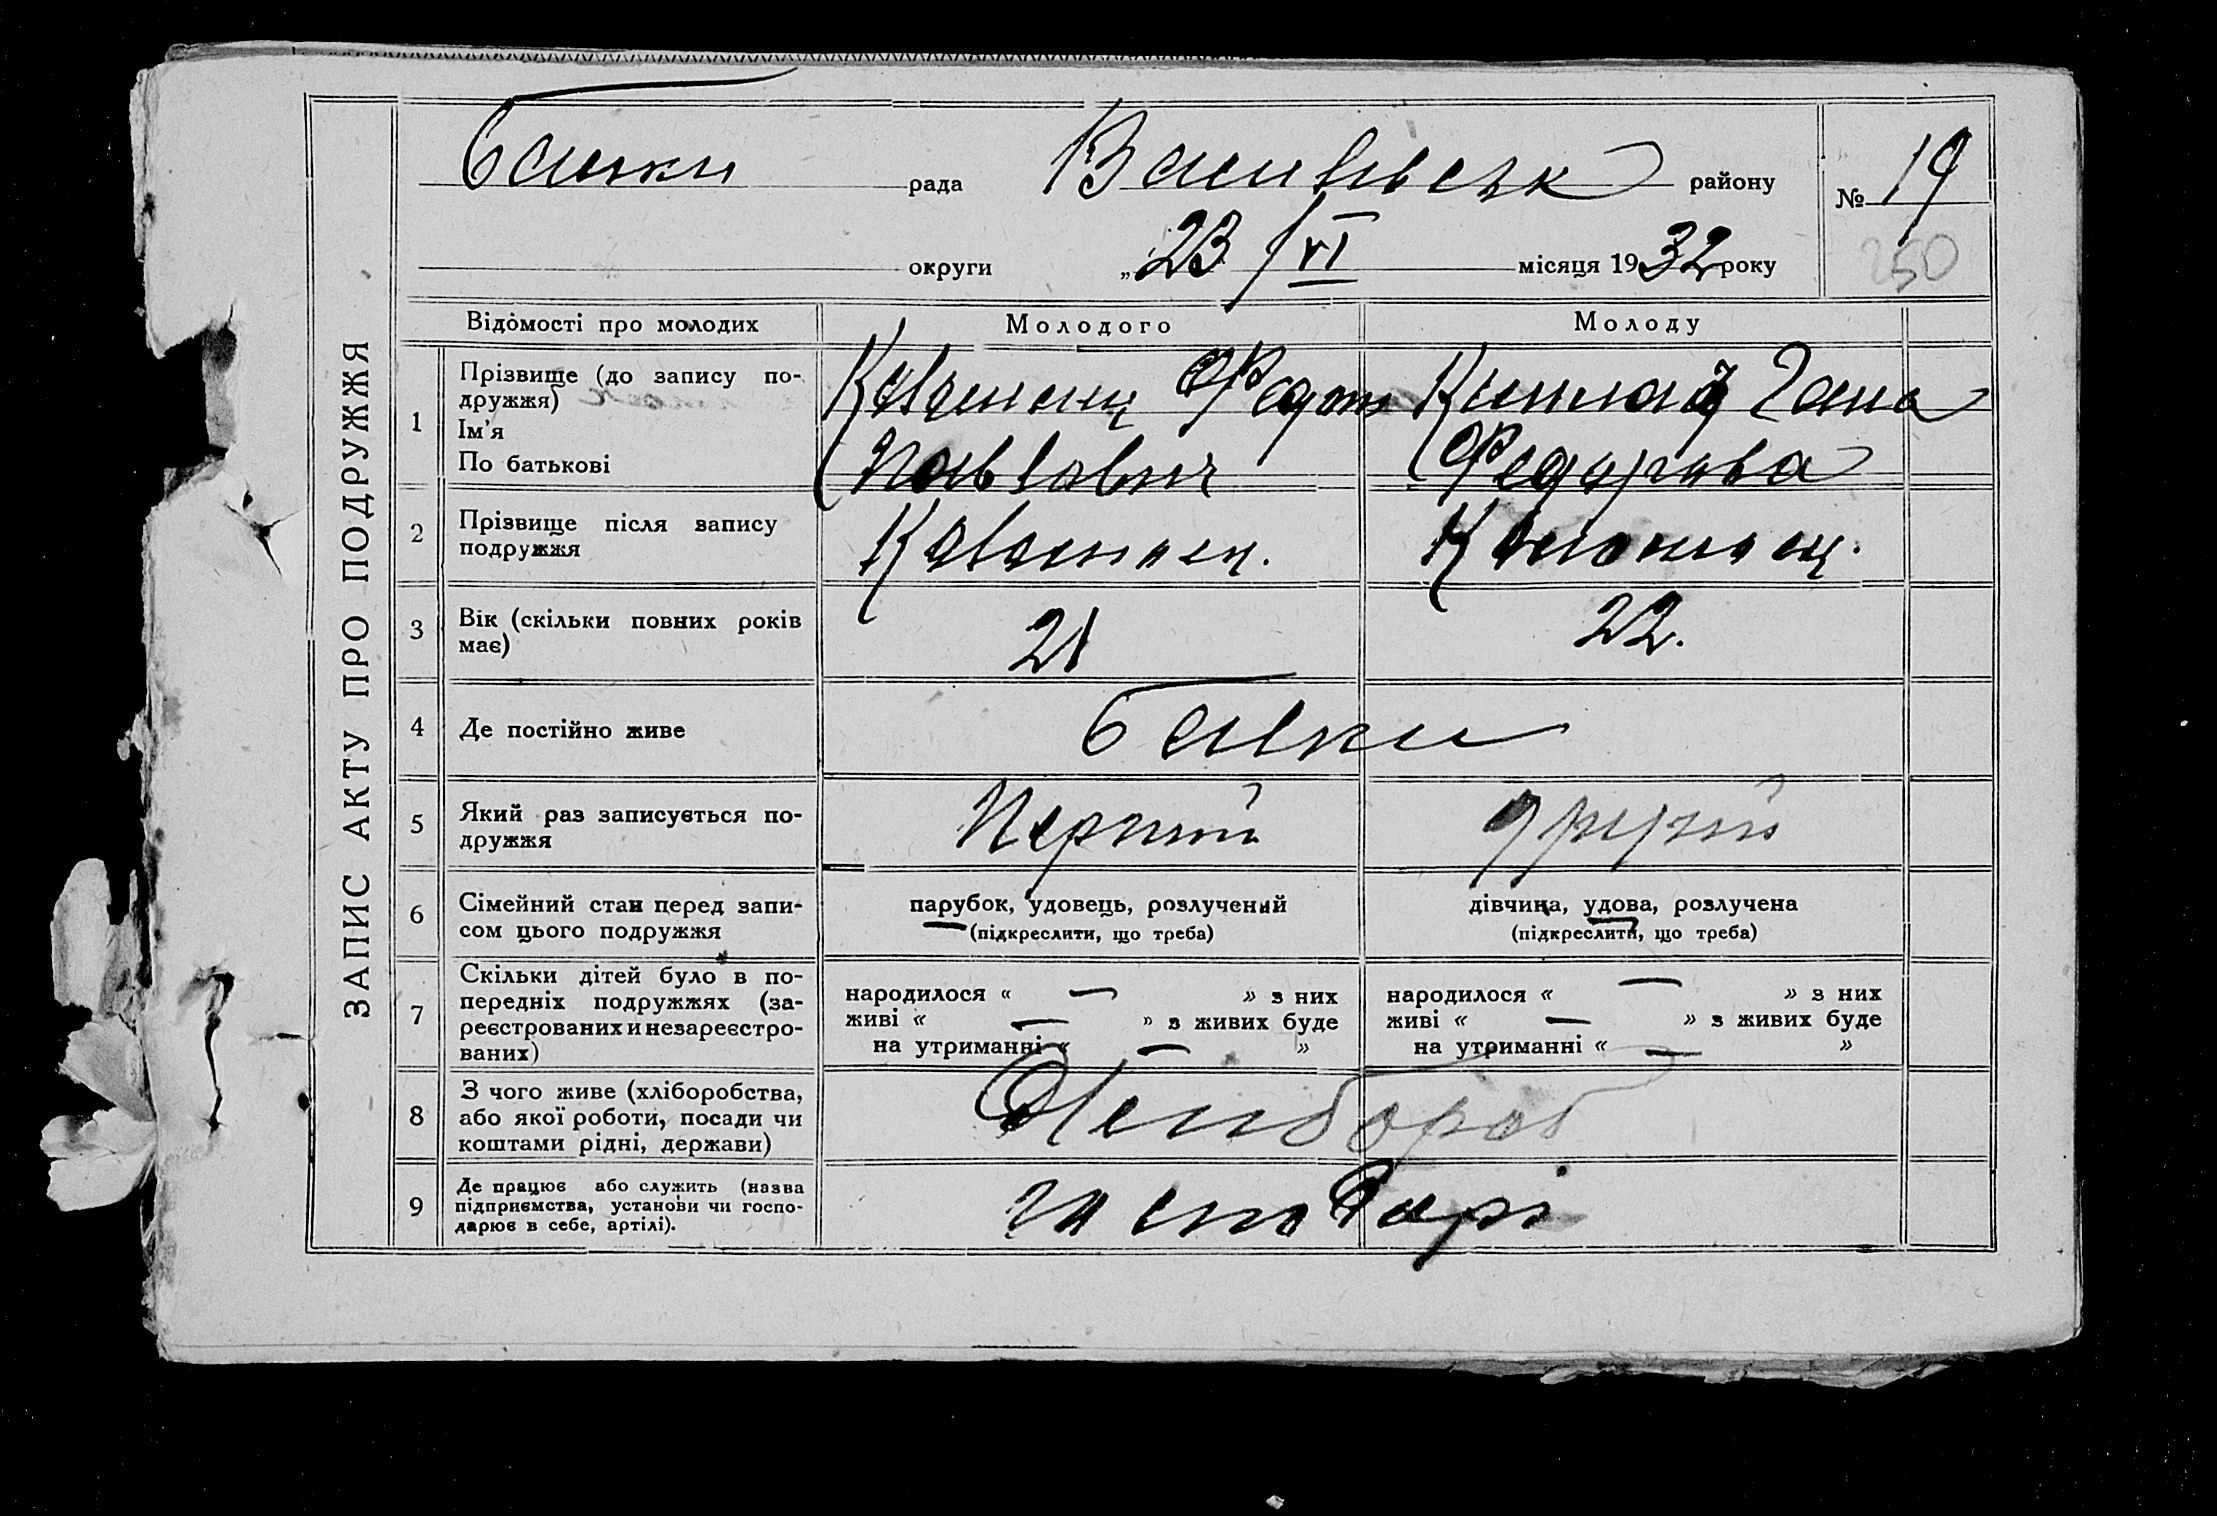 рада
району
№ 19
250
округи „ 23 / VI місяця 1932 року
ЗАПИС АКТУ ПРО ПОДРУЖЖЯ
Відомості про молодих
Молодого
Молоду
1
Прізвище (до запису по-
дружжя)
Ім'я
По батькові
Павлович
Гана
2
Прізвище після запису
подружжя
3
Вік (скільки повних років
має)
21
22.
4
Де постійно живе
5
Який раз записується по-
дружжя
Перший
другий
6
Сімейний стан перед запи-
сом цього подружжя
парубок, удовець, розлучений
(підкреслити, що треба)
дівчина, удова, розлучена
(підкреслити, що треба)
7
Скільки дітей було в по-
передніх подружжях (за-
реєстрованих и незареєстро-
ваних)
народилося « — » з них
живі « — » з живих буде
на утриманні « — »
народилося « — » з них
живі « — » з живих буде
на утриманні « — »
8
З чого живе (хліборобства,
або якої роботи, посади чи
коштами рідні, держави)
Хлибороб
9
Де працює або служить (назва
підприємства, установи чи госпо-
дарює в себе, артілі).